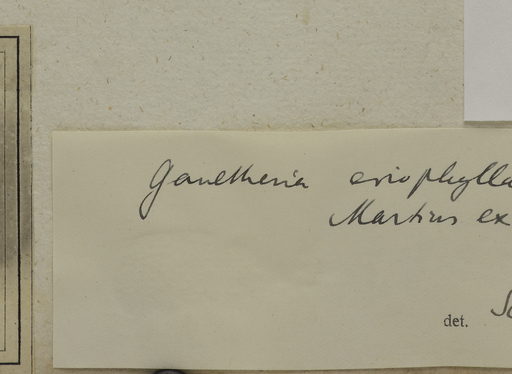 Gaultheria eriophylla
Martius ex
det. So